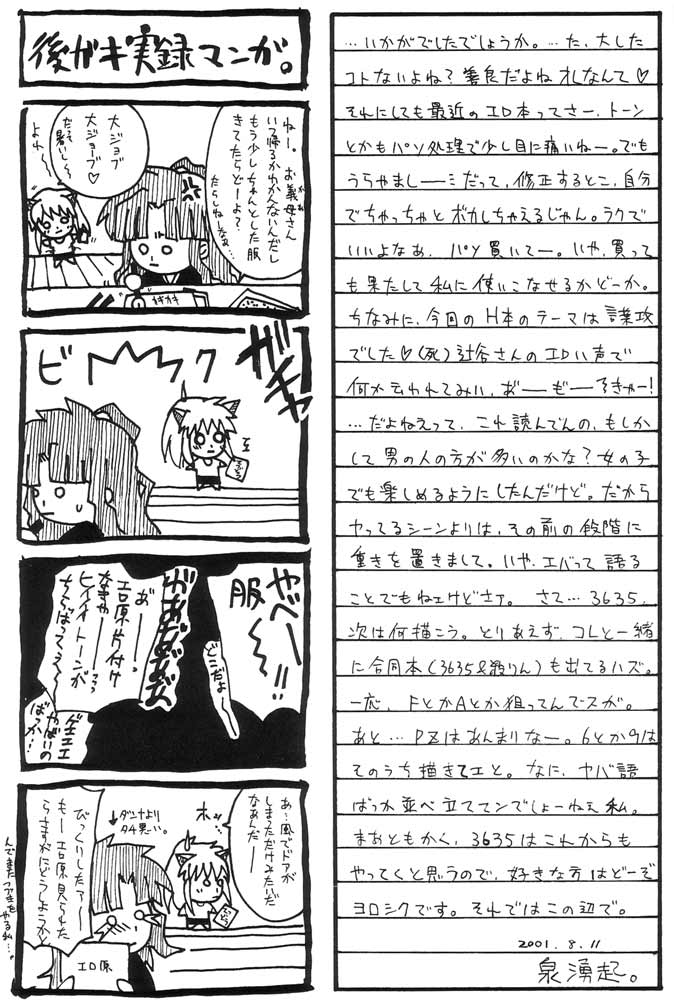 後ガキ実録マンガ。
ねー。お義母さん
いつ帰るかわかんないんだし
もう少しちゃんとした服
きてたらどーよ?
だらしねなぁ…
大ジョブ
大ジョーブ♡
だって暑いしぃ
よれ〜
ガチャ
ビクク
やべー!!
服
どこだよ
がおおおお
あ゛ーっ
エロ原片付け
なきゃーっっ
ヒィィイトーンが
ちらばってるぅ〜
ゲェエエ
やばいの
ばっか…!
あー風でドアが
しまっただけみたいだ
なぁんだー
ホッ
↓ダンナより
タチ悪ーい。
びっくりしたァー
もーエロ原見られた
らさすがにどうしようかと
エロ原
んでまたフツーにやる私…。
…いかがでしたでしょうか。…た、大した
コトないよね?善良だよねオレなんて♡
それにしても最近のエロ本ってさー、トーン
とかもパソ処理で少し目に痛いねー。でも
うらやましーーミだって、修正するとこ、自分
でちゃっちゃとボカしちゃえるじゃん。ラクで
いいよなぁ、パソ買いてー。いや、買って
も果たして私に使いこなせるかどーか。
ちなみに、今回のH本のテーマは言葉攻
でした♡(死)辻谷さんのエロい声で
何か云われてみい、お゛ーも゛ーうきゃー!
…だよねえって、これ読んでんの、もしか
して男の人の方が多いのかな?女の子
でも楽しめるようにしたんだけど。だから
ヤってるシーンよりは、その前の段階に
重きを置きまして。いや、エバって語る
ことでもねェけどさァ。さて…3635、
次は何描こう。とりあえず、コレと一緒
に合同本(3635&殺りん)も出てるハズ。
一応、FとかAとか狙ってんでスが。
あと…PZはあんまりなー。6とか9は
そのうち描きてエと。なに、ヤバ語
ばっか並べ立ててンでしょーねえ私。
まあともかく、3635はこれからも
やってくと思うので、好きな方はどーぞ
ヨロシクです。それではこの辺で。
2001.8.11
泉湧起。